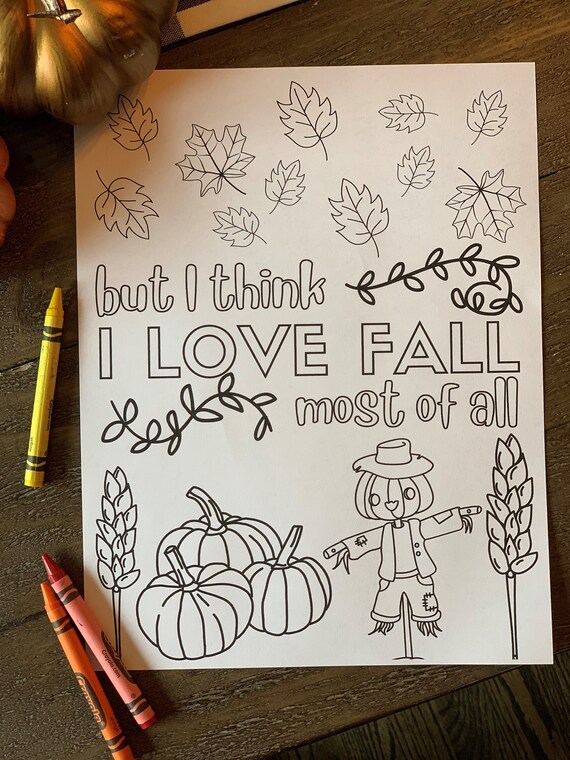 but I think
I LOVE FALL
most of all
Crayola